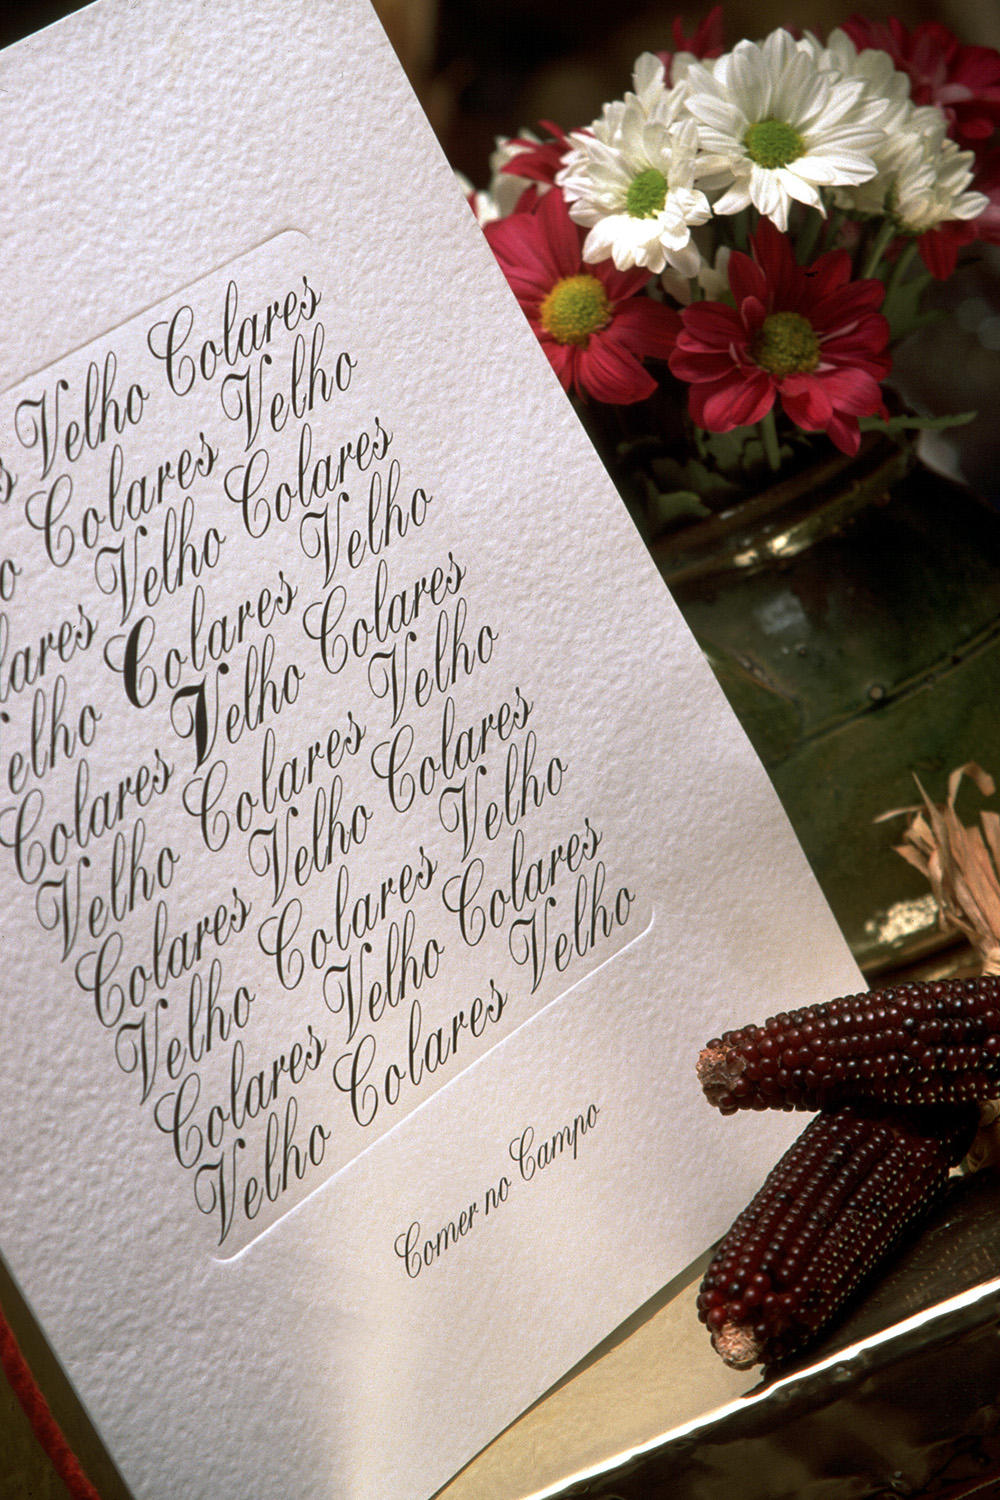 s Velho Colares
o Colares Velho
lares Velho Colares
elho Colares Velho
Colares Velho Colares
Velho Colares Velho
Colares Velho Colares
Velho Colares Velho
Colares Velho Colares
Velho Colares Velho
Comer no Campo